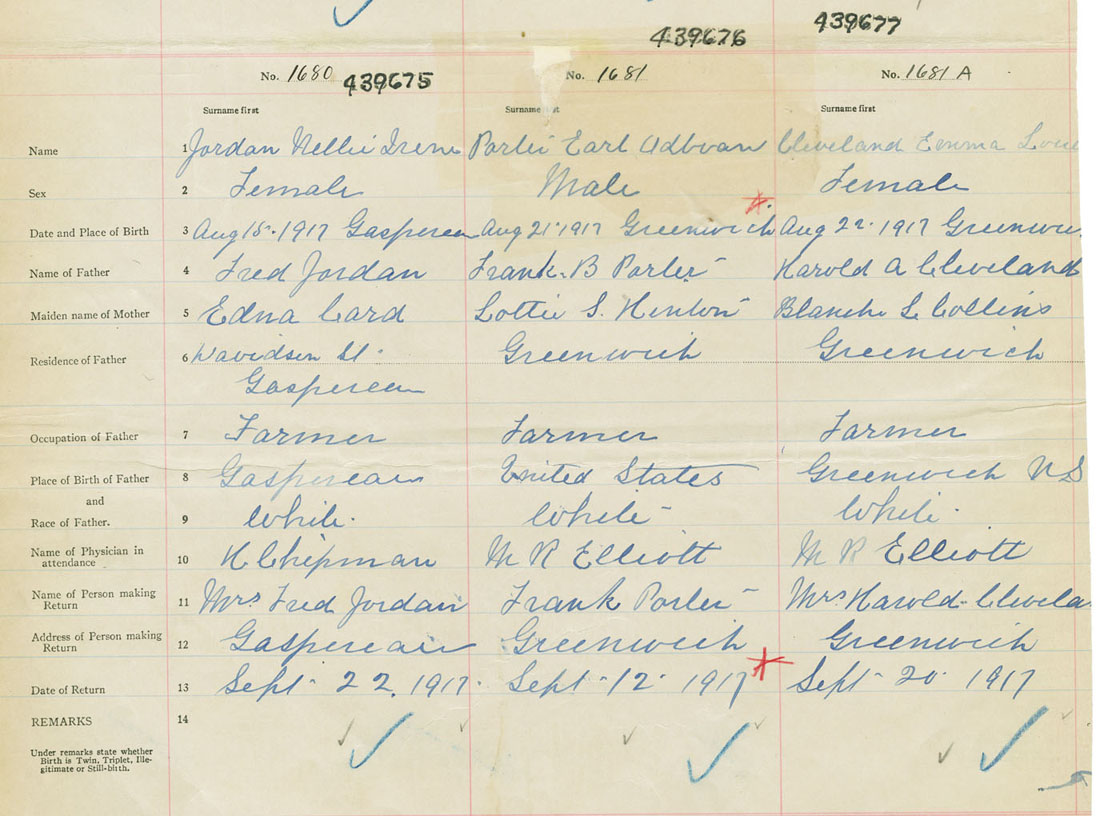 439676 439677
No. 1680 439675 No. 1681 No. 1681 A
Surname first Surname first Surname first
Name 1 Jordan Nellie Irene Porter Earl Cleveland Emma
Sex 2 Female Male Female
Date and Place of Birth 3 Aug 15. 1917 Gaspereau Aug 21. 1917 Greenwich Aug 22. 1917
Name of Father 4 Fred Jordan Frank B Porter Harold A Cleveland
Maiden name of Mother 5 Edna Card Lottie S. Blanche L Collins
Residence of Father 6 Davidson St. Greenwich Greenwich
Gaspereau
Occupation of Father 7 Farmer Farmer Farmer
Place of Birth of Father 8 Gaspereau United States Greenwich NS
and
Race of Father. 9 White. White White.
Name of Physician in attendance 10 H Chipman M R Elliott M R Elliott
Name of Person making Return 11 Mrs Fred Jordan Frank Porter Mrs Harold
Address of Person making Return 12 Gaspereau Greenwich Greenwich
Date of Return 13 Sept 22. 1917. Sept 12. 1917 Sept 20. 1917
REMARKS 14
Under remarks state whether
Birth is Twin, Triplet, Ille-
gitimate or Still-birth.